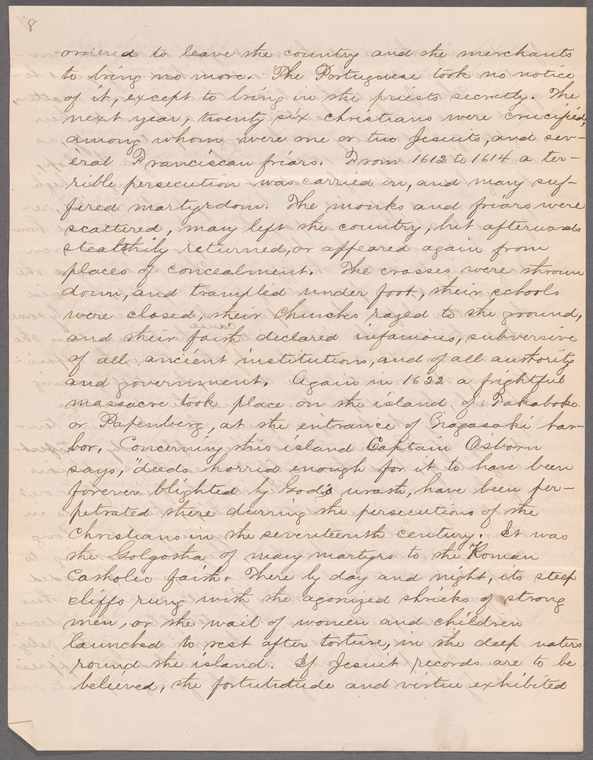 8
ordered to leave the country and the merchants
to bring no more. The Portuguese took no notice
of it, except to bring in the priests secretly. The
next year, twenty six christians were crucified,
among whom were one or two Jesuits, and sev-
eral Franciscan friars. From 1612 to 1614 a ter-
rible persecution was carried on, and many suf-
fired martyrdom. The monks and friars were
scattered, many left the country, but afterwards
stealthily returned, or appeared again from
places of concealment. The crosses were thrown
down, and trampled under foot, their schools
were closed, their Churches razed to the ground,
and their faith declared infamous, subversive
of all ancient institutions, and of all authority
and government. Again in 1622 a frightful
massacre took place on the island of Takaboko
or Papenberg, at the entrance of Nagasaki har-
bor. Concerning this island Captain Osborn
says, "deeds horrid enough for it to have been
forever blighted by God's wrath, have been per-
petrated there durring the persecutions of the
Christians in the seventeenth century. It was
the Golgotha of many martyrs to the Roman
Catholic faith. There by day and night, its steep
cliffs rung with the agonized shrieks of strong
men, or the wail of women and children
launched to rest after torture, in the deep waters
round the island. If Jesuit records are to be
believed, the fortutidude and virtue exhibited